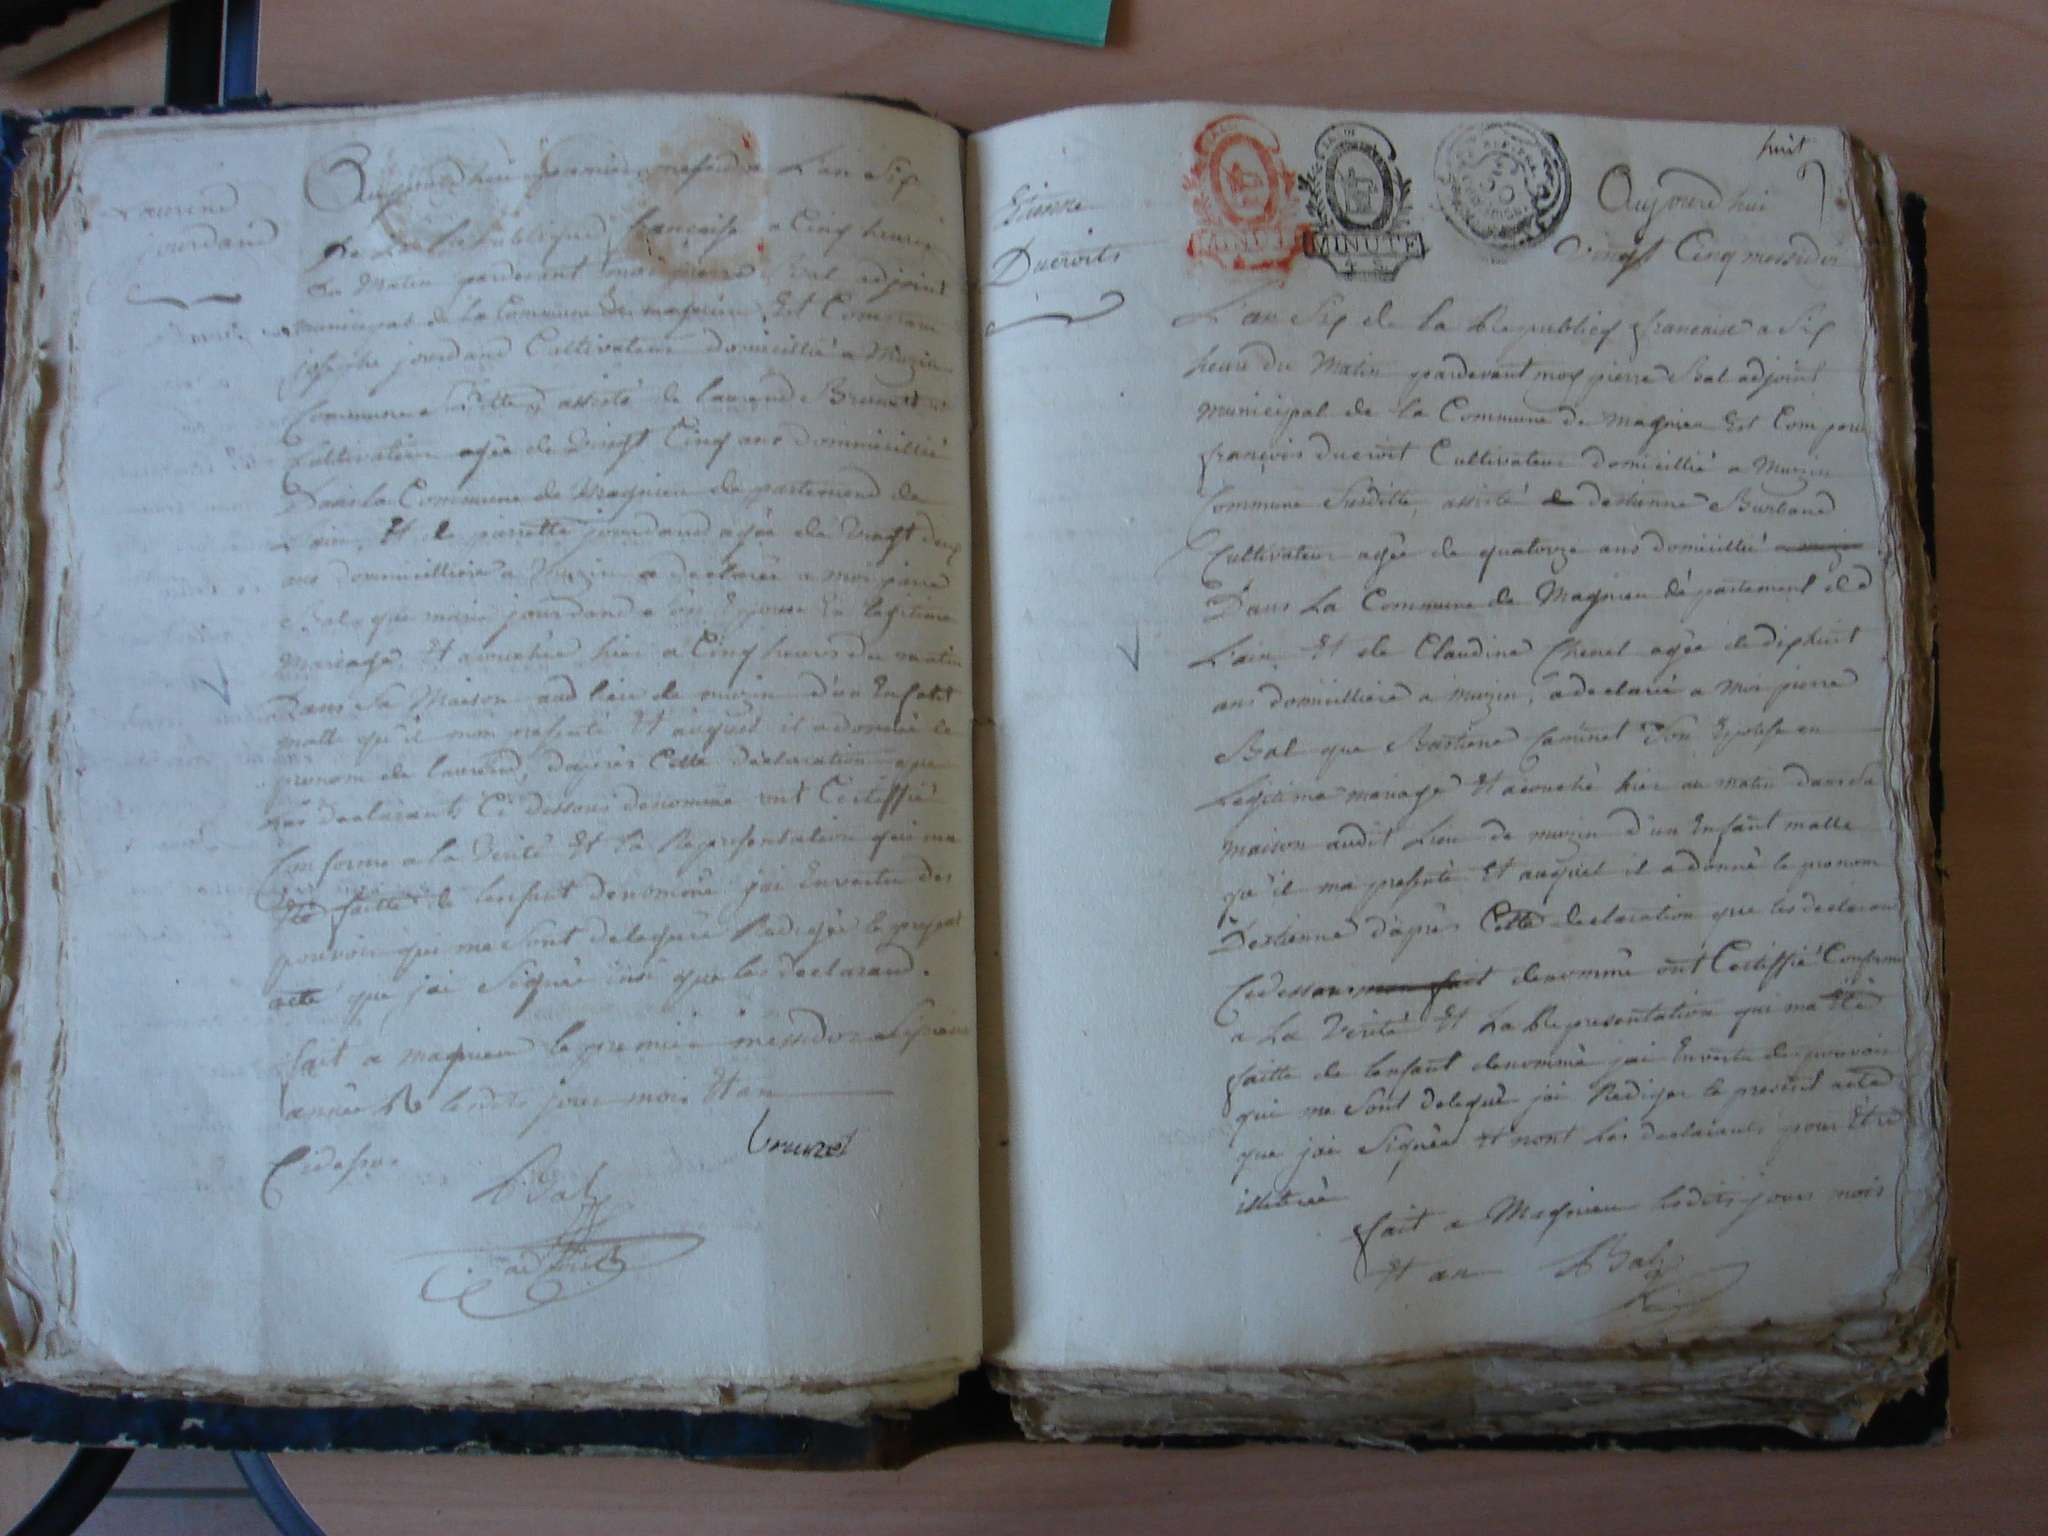 Laurend
jourdand
Aujourdhui premier messidor L'an Six
De La Republique française a Cinq heures
Du Matin pardevant moi pierre Bal adjoint
Municipal de La Commune de magnieu Est Comparu
josephe jourdand Cultivateur domicillié a Muzin
Commune Suditte, assisté de laurend Brunet
Cultivateur agée de Vingt Cinq ans dommicillié
Dans la Commune de Magnieu departement de
L'ain, Et de pierrette jourdand agée de Vingt deux
ans dommicilliere a Muzin a declarée a moi pierre
Bal que marie jourdand son Epouse En legitime
Mariage Et acouchée hier a Cinq heures du matin
Dans Sa Maison aud lieu de muzin d'un Enfant
malle qu'il m'on presenté Et auquel il a donnée le
prenom de laurend, d'apres Cette declaration
les declarants Ci dessous denommé ont Certiffié
Conforme a la Verité Et la Representation qui ma
Eté faitte de lenfant denommé jai En vertu des
pouvoir qui me Sont deleguée Redigée le present
acte que jai Signée insi que les declarand.
fait a magnieu le premier messidor
année R lesdits jour mois Et an
Brunet
Bal
adjoint
huit
Etienne
Ducroits
MINUTE
MINUTE
Aujourdhui
Vingt Cinq messidor
L'an Six de la Republiq francaise a Six
heure du Matin pardevant moy pierre Bal adjoint
Municipal de la Commune de magnieu Est Comparu
françois Ducroit Cultivateur domicillié a Muzin
Commune Susditte, assisté de destienne Burband
Cultivateur agée de quatorze ans domicillié
Dans La Commune de Magnieu département de
L'ain Et de Claudine Chenet agée de dixhuit
ans domicilliere a muzin, a declarée a Moi pierre
Bal que Bastiene Caminet Son Epouse en
Legitime mariage Et acouché hier au matin dans Sa
maison audit Lieu de muzin d'un Enfant malle
qu'il ma presenté Et auquel il a donné le pronom
Destienne d'après Cette declaration que les declarant
Cidessous denommé ont Certiffié Conforme
a La Verité Et La Representation qui ma Eté
faitte de lenfant denommé jai En vertu des pouvoir
qui me Sont delegué jai Rediger le present acte
que jai Signée Et nont les declarants pour Etre
illetrée
fait a Magnieu lesdits jours mois
Et an Bal